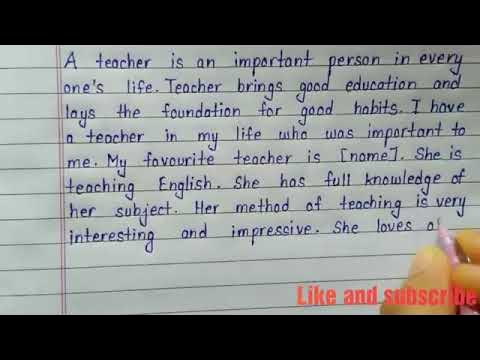 A teacher is an important person in every
one's life. Teacher brings good education and
lays the foundation for good habits. I have
a teacher in my life who was important to
me. My favourite teacher is [name]. She is
teaching English. She has full knowledge of
her subject. Her method of teaching is very
interesting and impressive. She loves
Like and subscribe